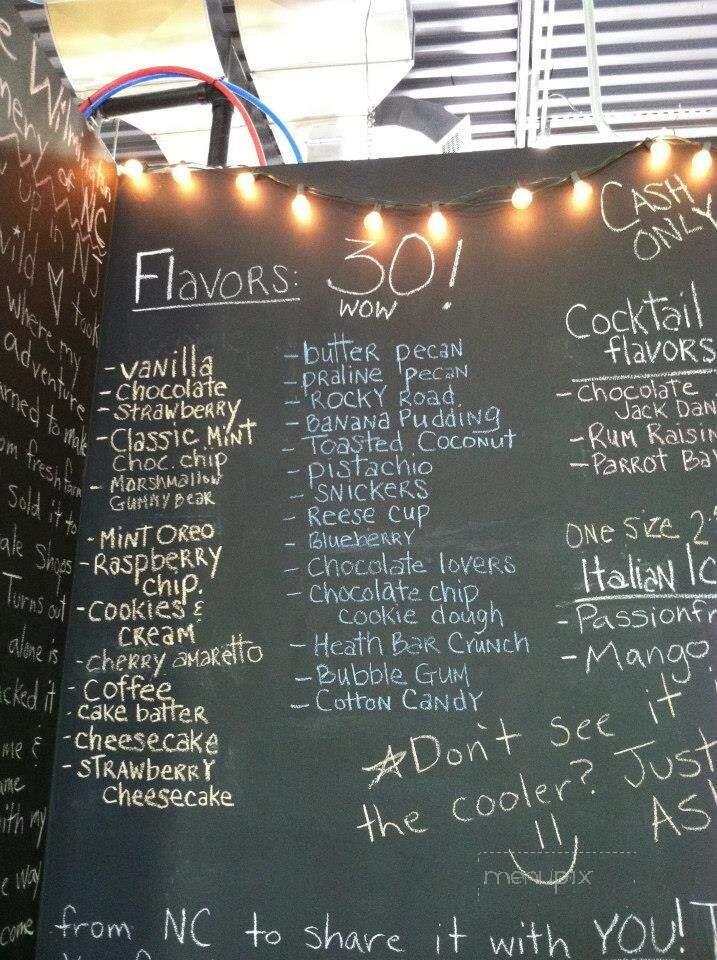 Wilmington
NC
up in NJ
took
where my
adventure
to make
fresh farm
Sold it to
Shops
Turns out
alone is
it
me &
with my
way
come
Flavors: 30!
WOW
CASH
ONLY
- vanilla
- chocolate
- strawberry
- Classic Mint
Choc. chip
- Marshmallow
Gummy Bear
- Mint Oreo
- Raspberry
chip.
- Cookies &
CREAM
- cherry amaretto
- Coffee
- cake batter
- cheesecake
- STRAWBERRY
Cheesecake
- butter pecan
- praline pecan
- ROCKY Road
- Banana Pudding
- Toasted Coconut
- Pistachio
- SNICKERS
- Reese Cup
- Blueberry
- Chocolate lovers
- Chocolate chip
cookie dough
- Heath Bar Crunch
- Bubble Gum
- Cotton Candy
Cocktail
flavors
- Chocolate
Jack Dan
- Rum Raisin
- Parrot Bay
ONE SIZE 2
Italian Ic
- Passionfr
- Mango
Don't see it
the cooler? Just
AS
menupix
from NC to share it with YOU!